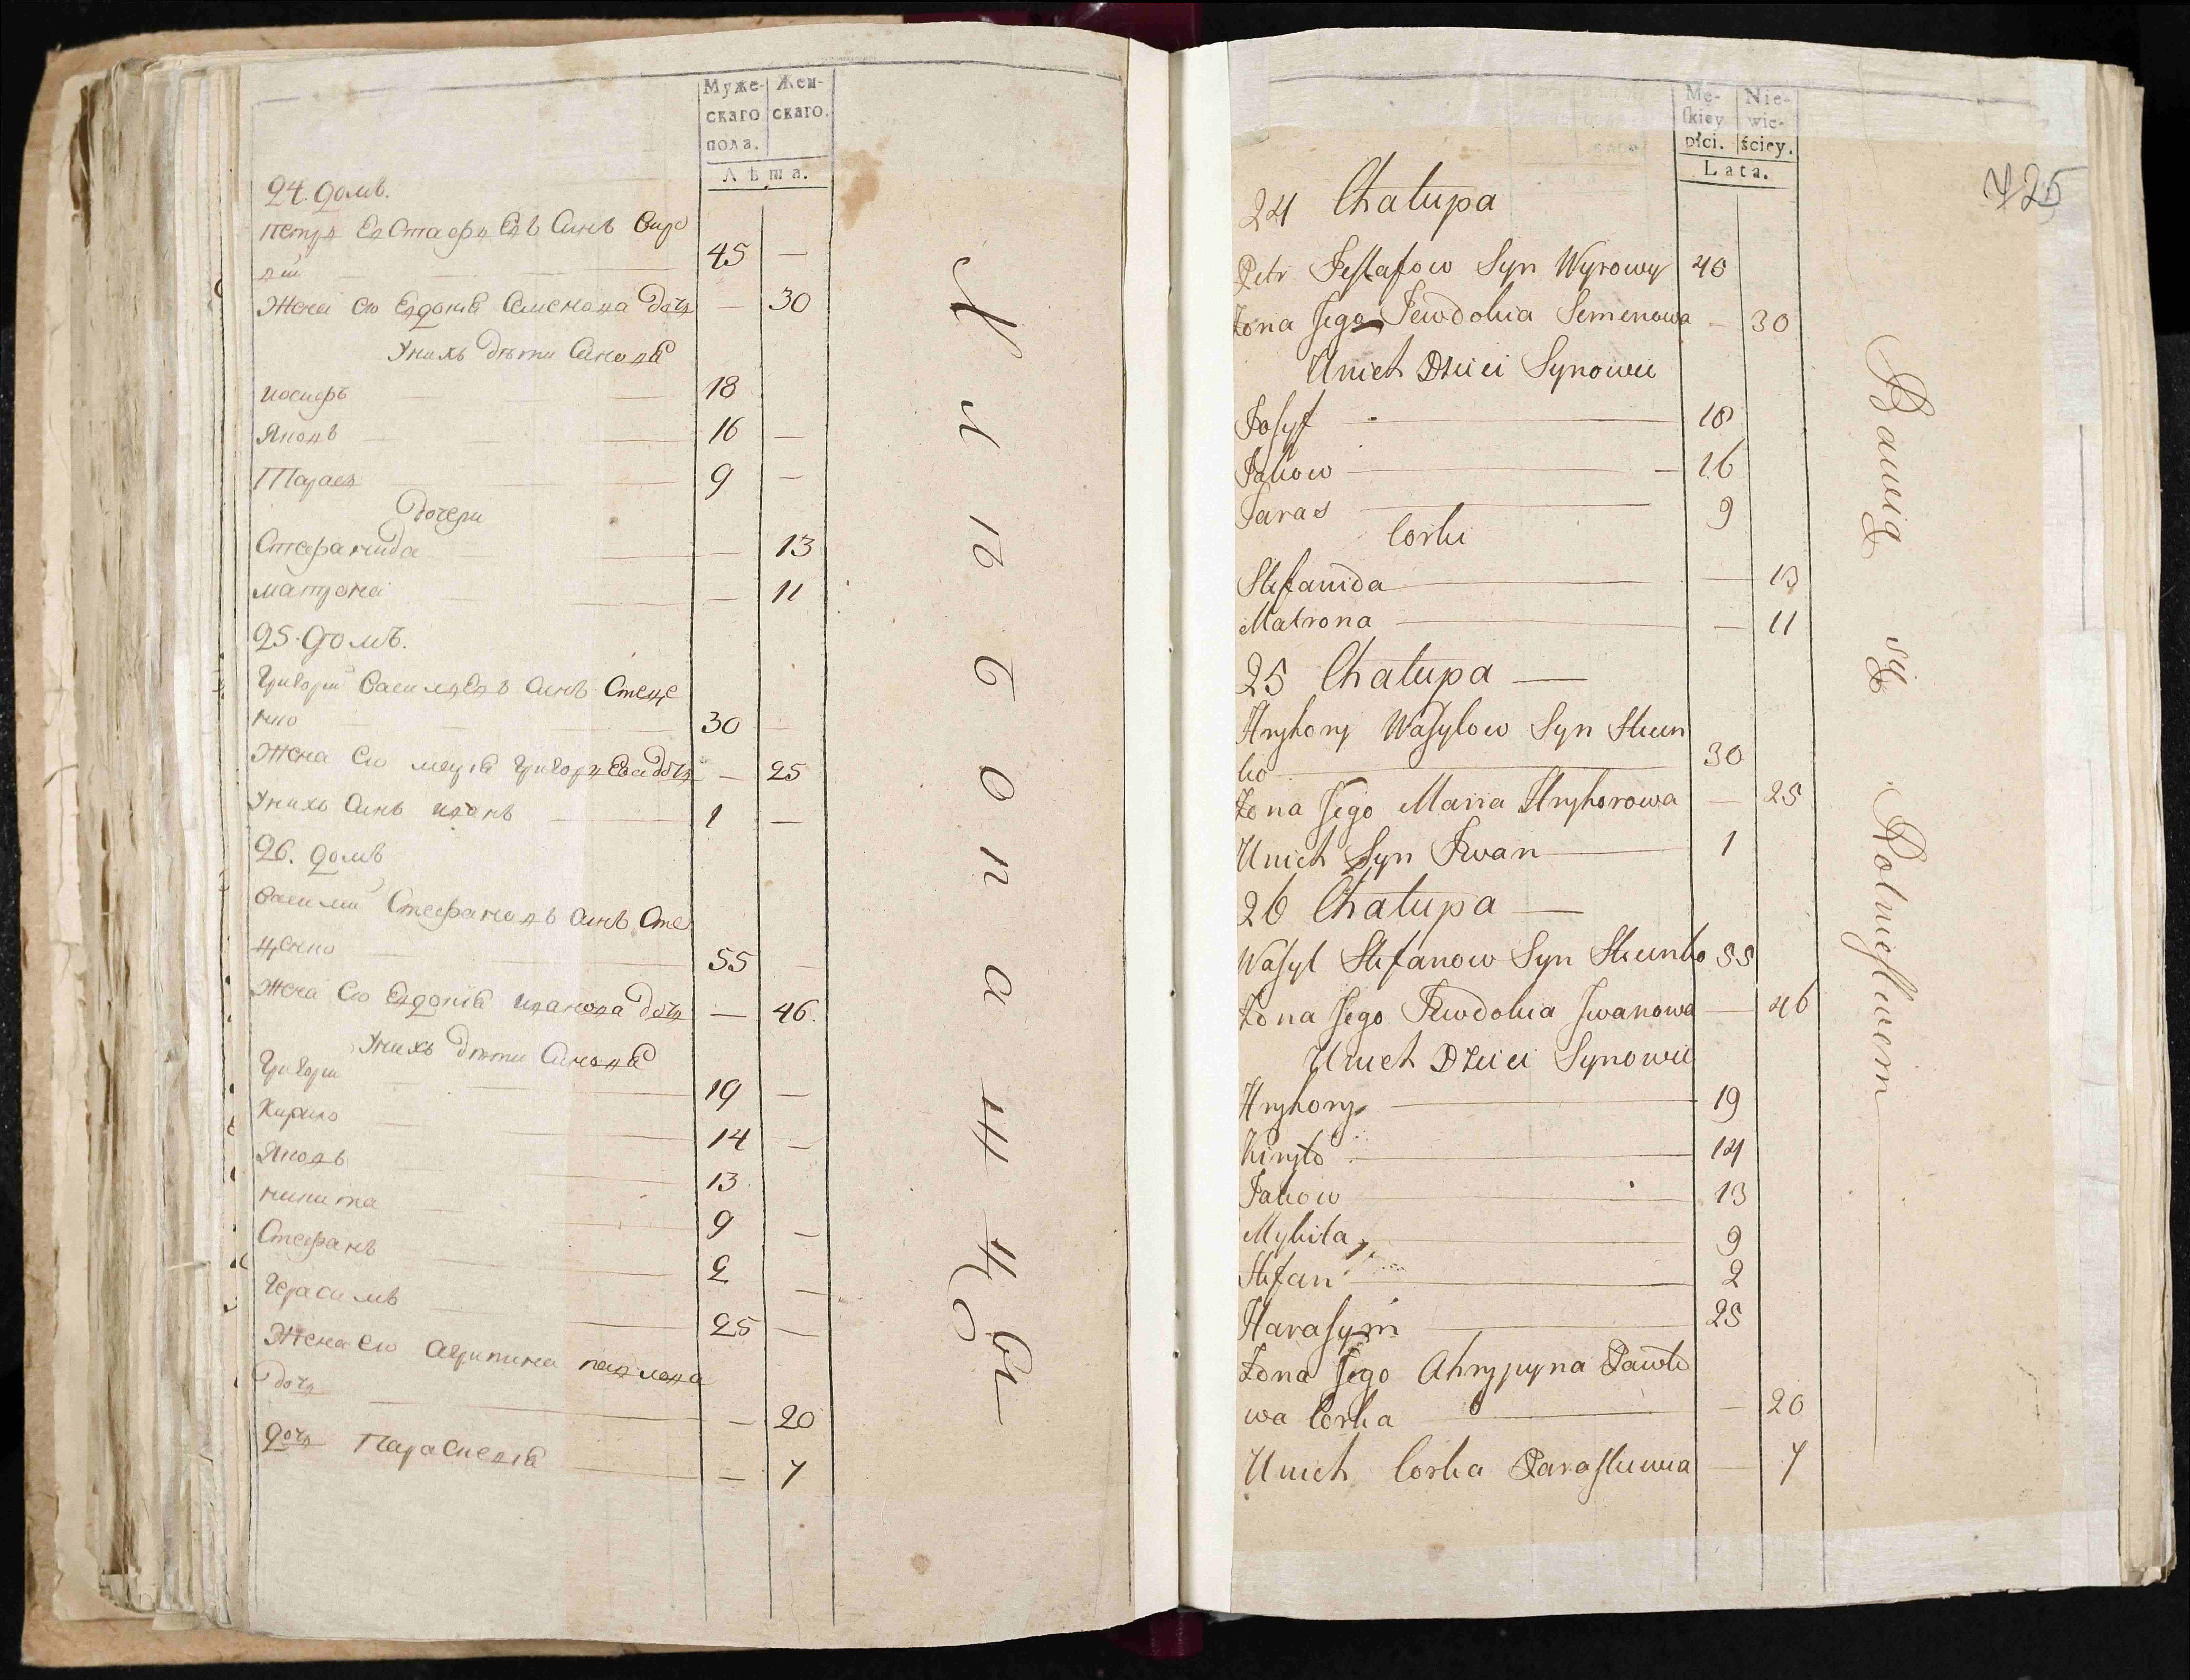 Муже-
скаго
пола.
Жен-
скаго.
Лѣта.
24. домъ.
Петръ Евстафиевъ синъ Виро
вий 45 —
Жена его Евдокия Семенова дочь — 30
У нихъ дѣти синове
Иосифъ 18
Яковъ 16 —
Тарас 9 —
дочери
Стефанида — 13
Матрона — 11
25. домъ.
Григорий Василиевъ синъ Стецe
нко 30 —
Жена его Мария Григориева дочь — 25
У нихъ синъ Иванъ 1 —
26. домъ
Василий Стефановъ синъ Сте
ценко 55 —
Жена его Евдокия Иванова дочь — 46.
У нихъ дѣти синове
Григорий 19 —
Кирило 14 —
Яковъ 13
Никита 9 —
Стефанъ 2 —
Герасимъ 25 —
Жена его Агрипина Павлова
дочь — 20
дочь Параскевия — 7
Me-
skiey
płci.
Nie-
wie-
ściey.
Lata.
725
24 Chałupa
Petr Jestafow Syn Wyrowy 45
Żona Jego Jewdokia Semenowa — 30
U nich Dzieci Synowie
Josyf — 18
Jakow — 16
Taras — 9
Corki
Stefanida — 13
Matrona — 11
25 Chałupa —
Hryhory Wasylow Syn Stecen
ko — 30
Żona Jego Maria Hryhorowa — 25
U nich Syn Iwan — 1
26 Chałupa —
Wasyl Stefanow Syn Stecenko 55
Żona Jego Jewdokia Iwanowa — 46
U nich Dzieci Synowie
Hryhory — 19
Kiryło — 14
Jakow — 13
Mykita — 9
Stefan — 2
Harasym — 25
Żona Jego Ahrypyna Pawło
wa Corka — 20
U nich Corka Paraskewia — 7
Bawią się Rolnictwem